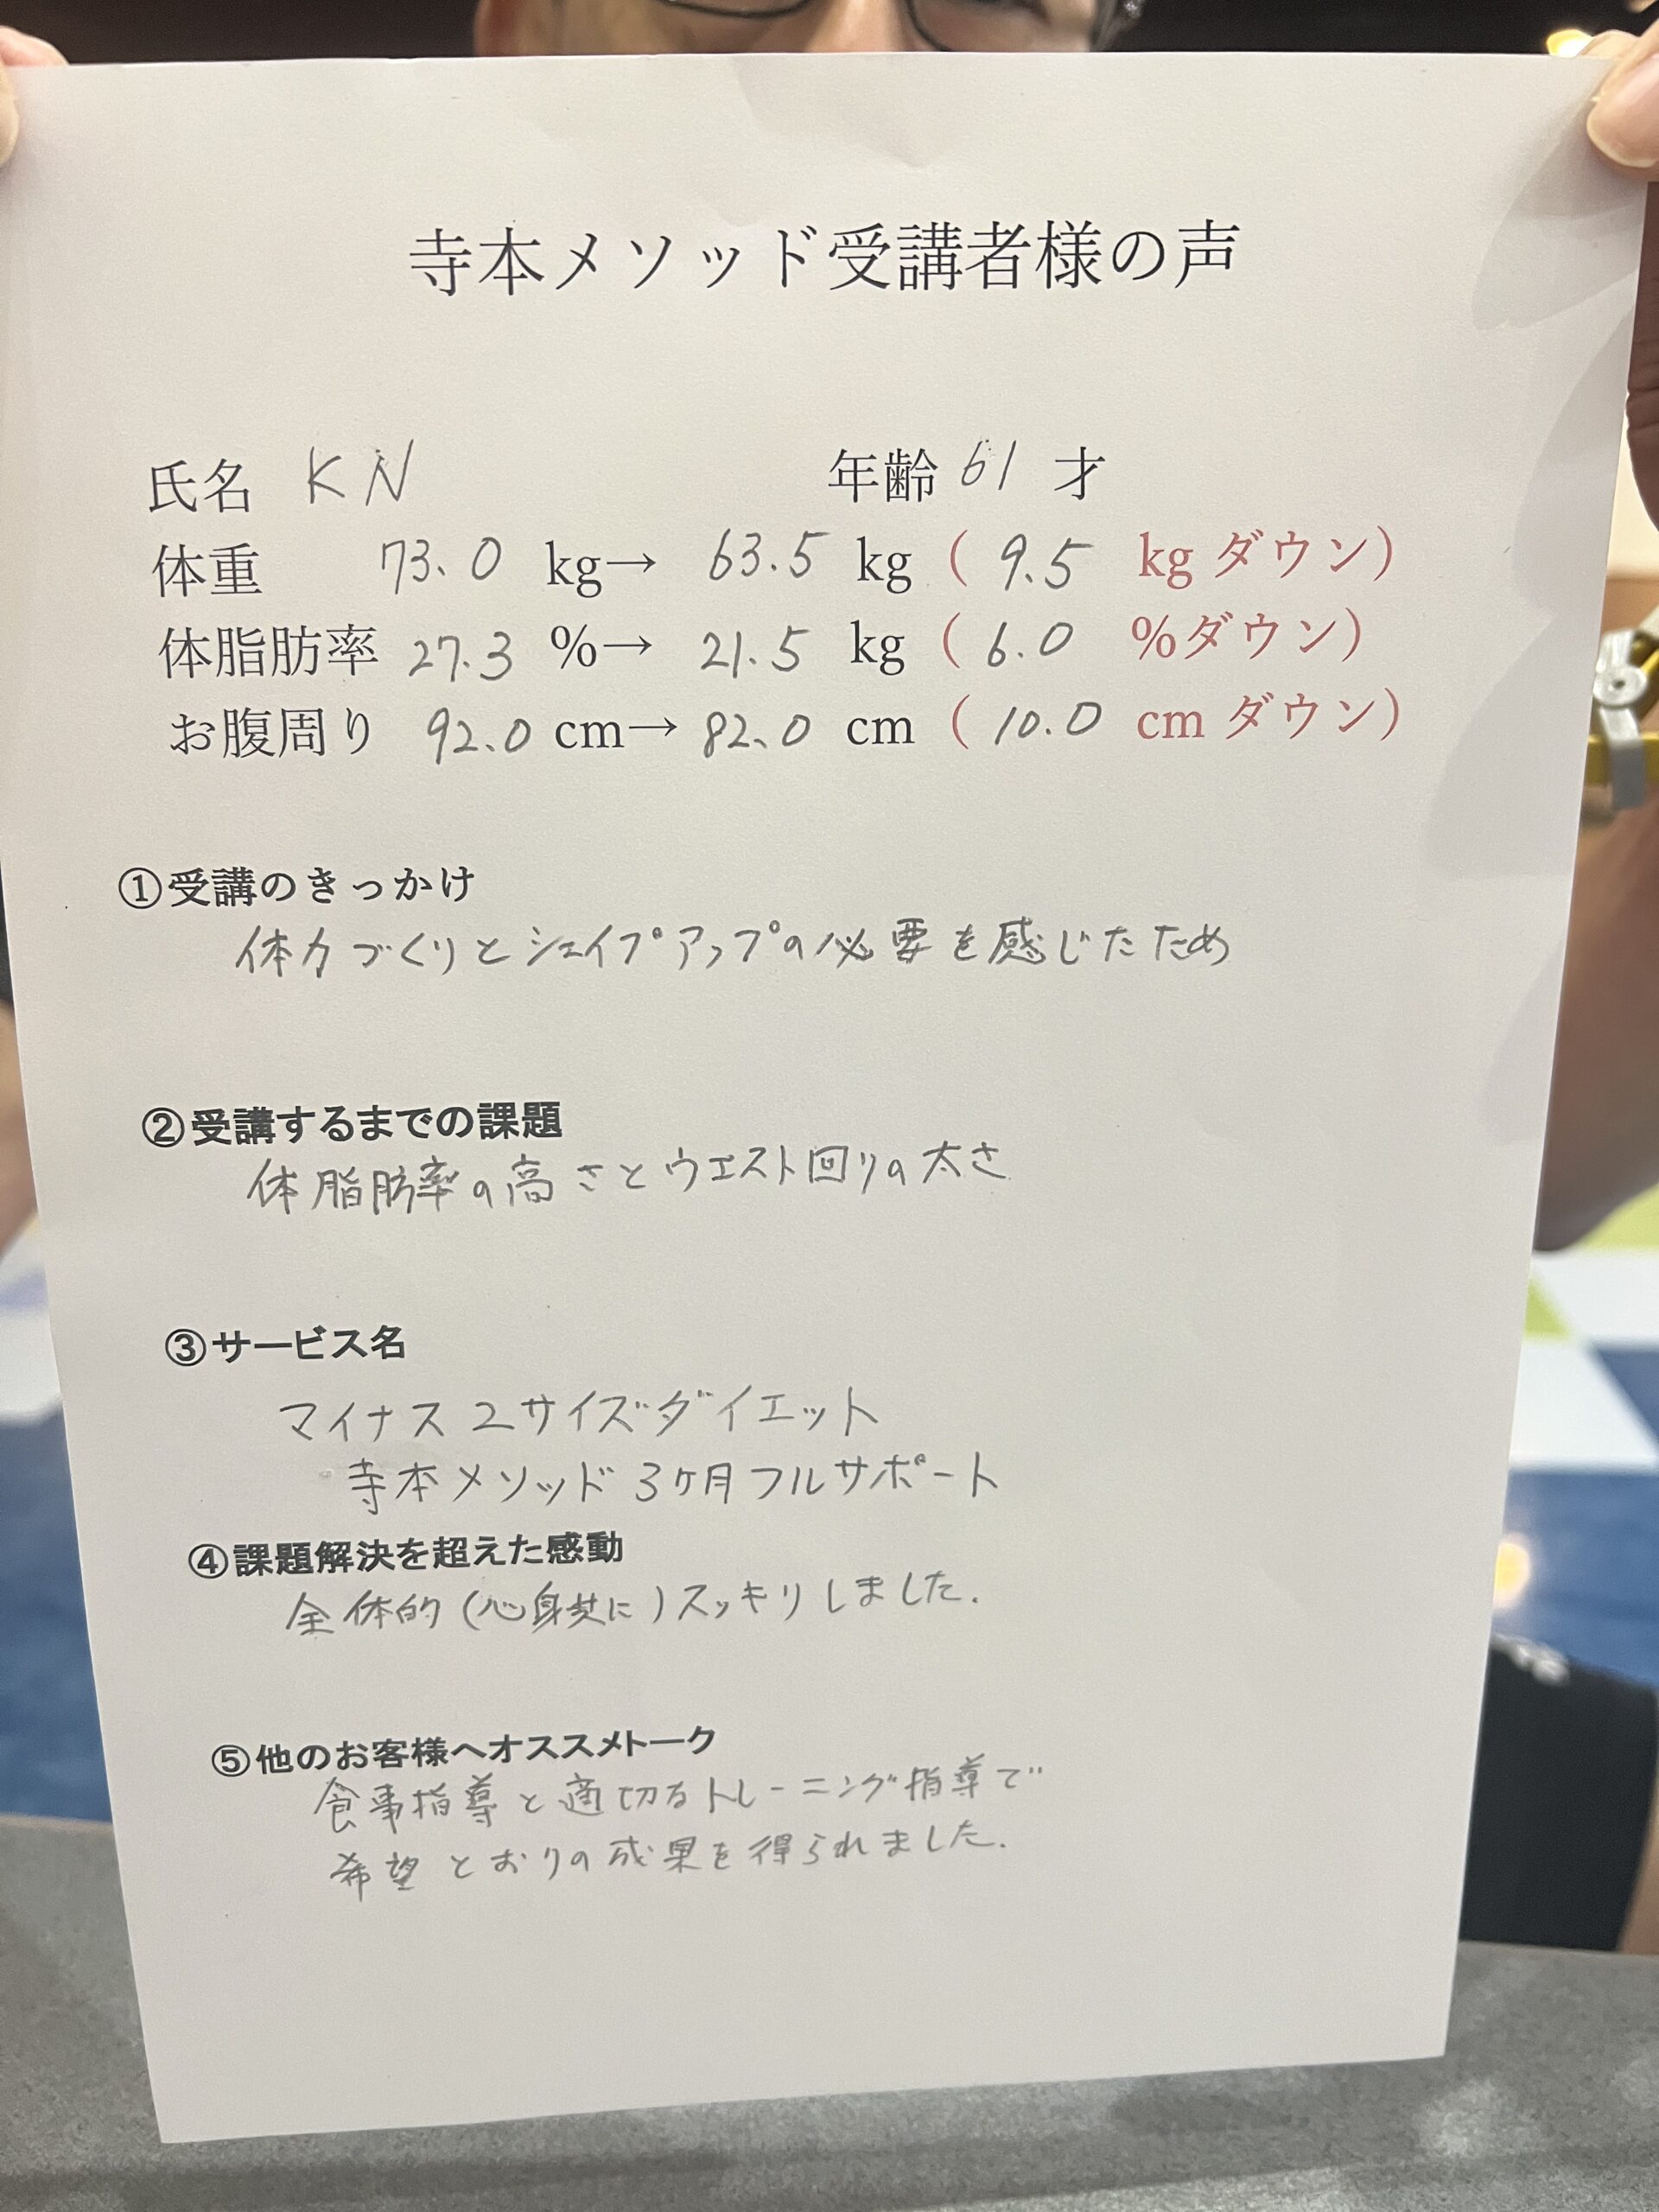 寺本メソッド受講者様の声
氏名 KN 年齢 61 才
体重 73.0 kg→ 63.5 kg ( 9.5 kg ダウン)
体脂肪率 27.3 %→ 21.5 kg ( 6.0 %ダウン)
お腹周り 92.0 cm→ 82.0 cm ( 10.0 cm ダウン)
①受講のきっかけ
体力づくりとシェイプアップの必要を感じたため
②受講するまでの課題
体脂肪率の高さとウエスト回りの太さ
③サービス名
マイナス2サイズダイエット
寺本メソッド3ケ月フルサポート
④課題解決を超えた感動
全体的(心身共に)スッキリしました.
⑤他のお客様へオススメトーク
食事指導と適切なトレーニング指導で
希望とおりの成果を得られました.